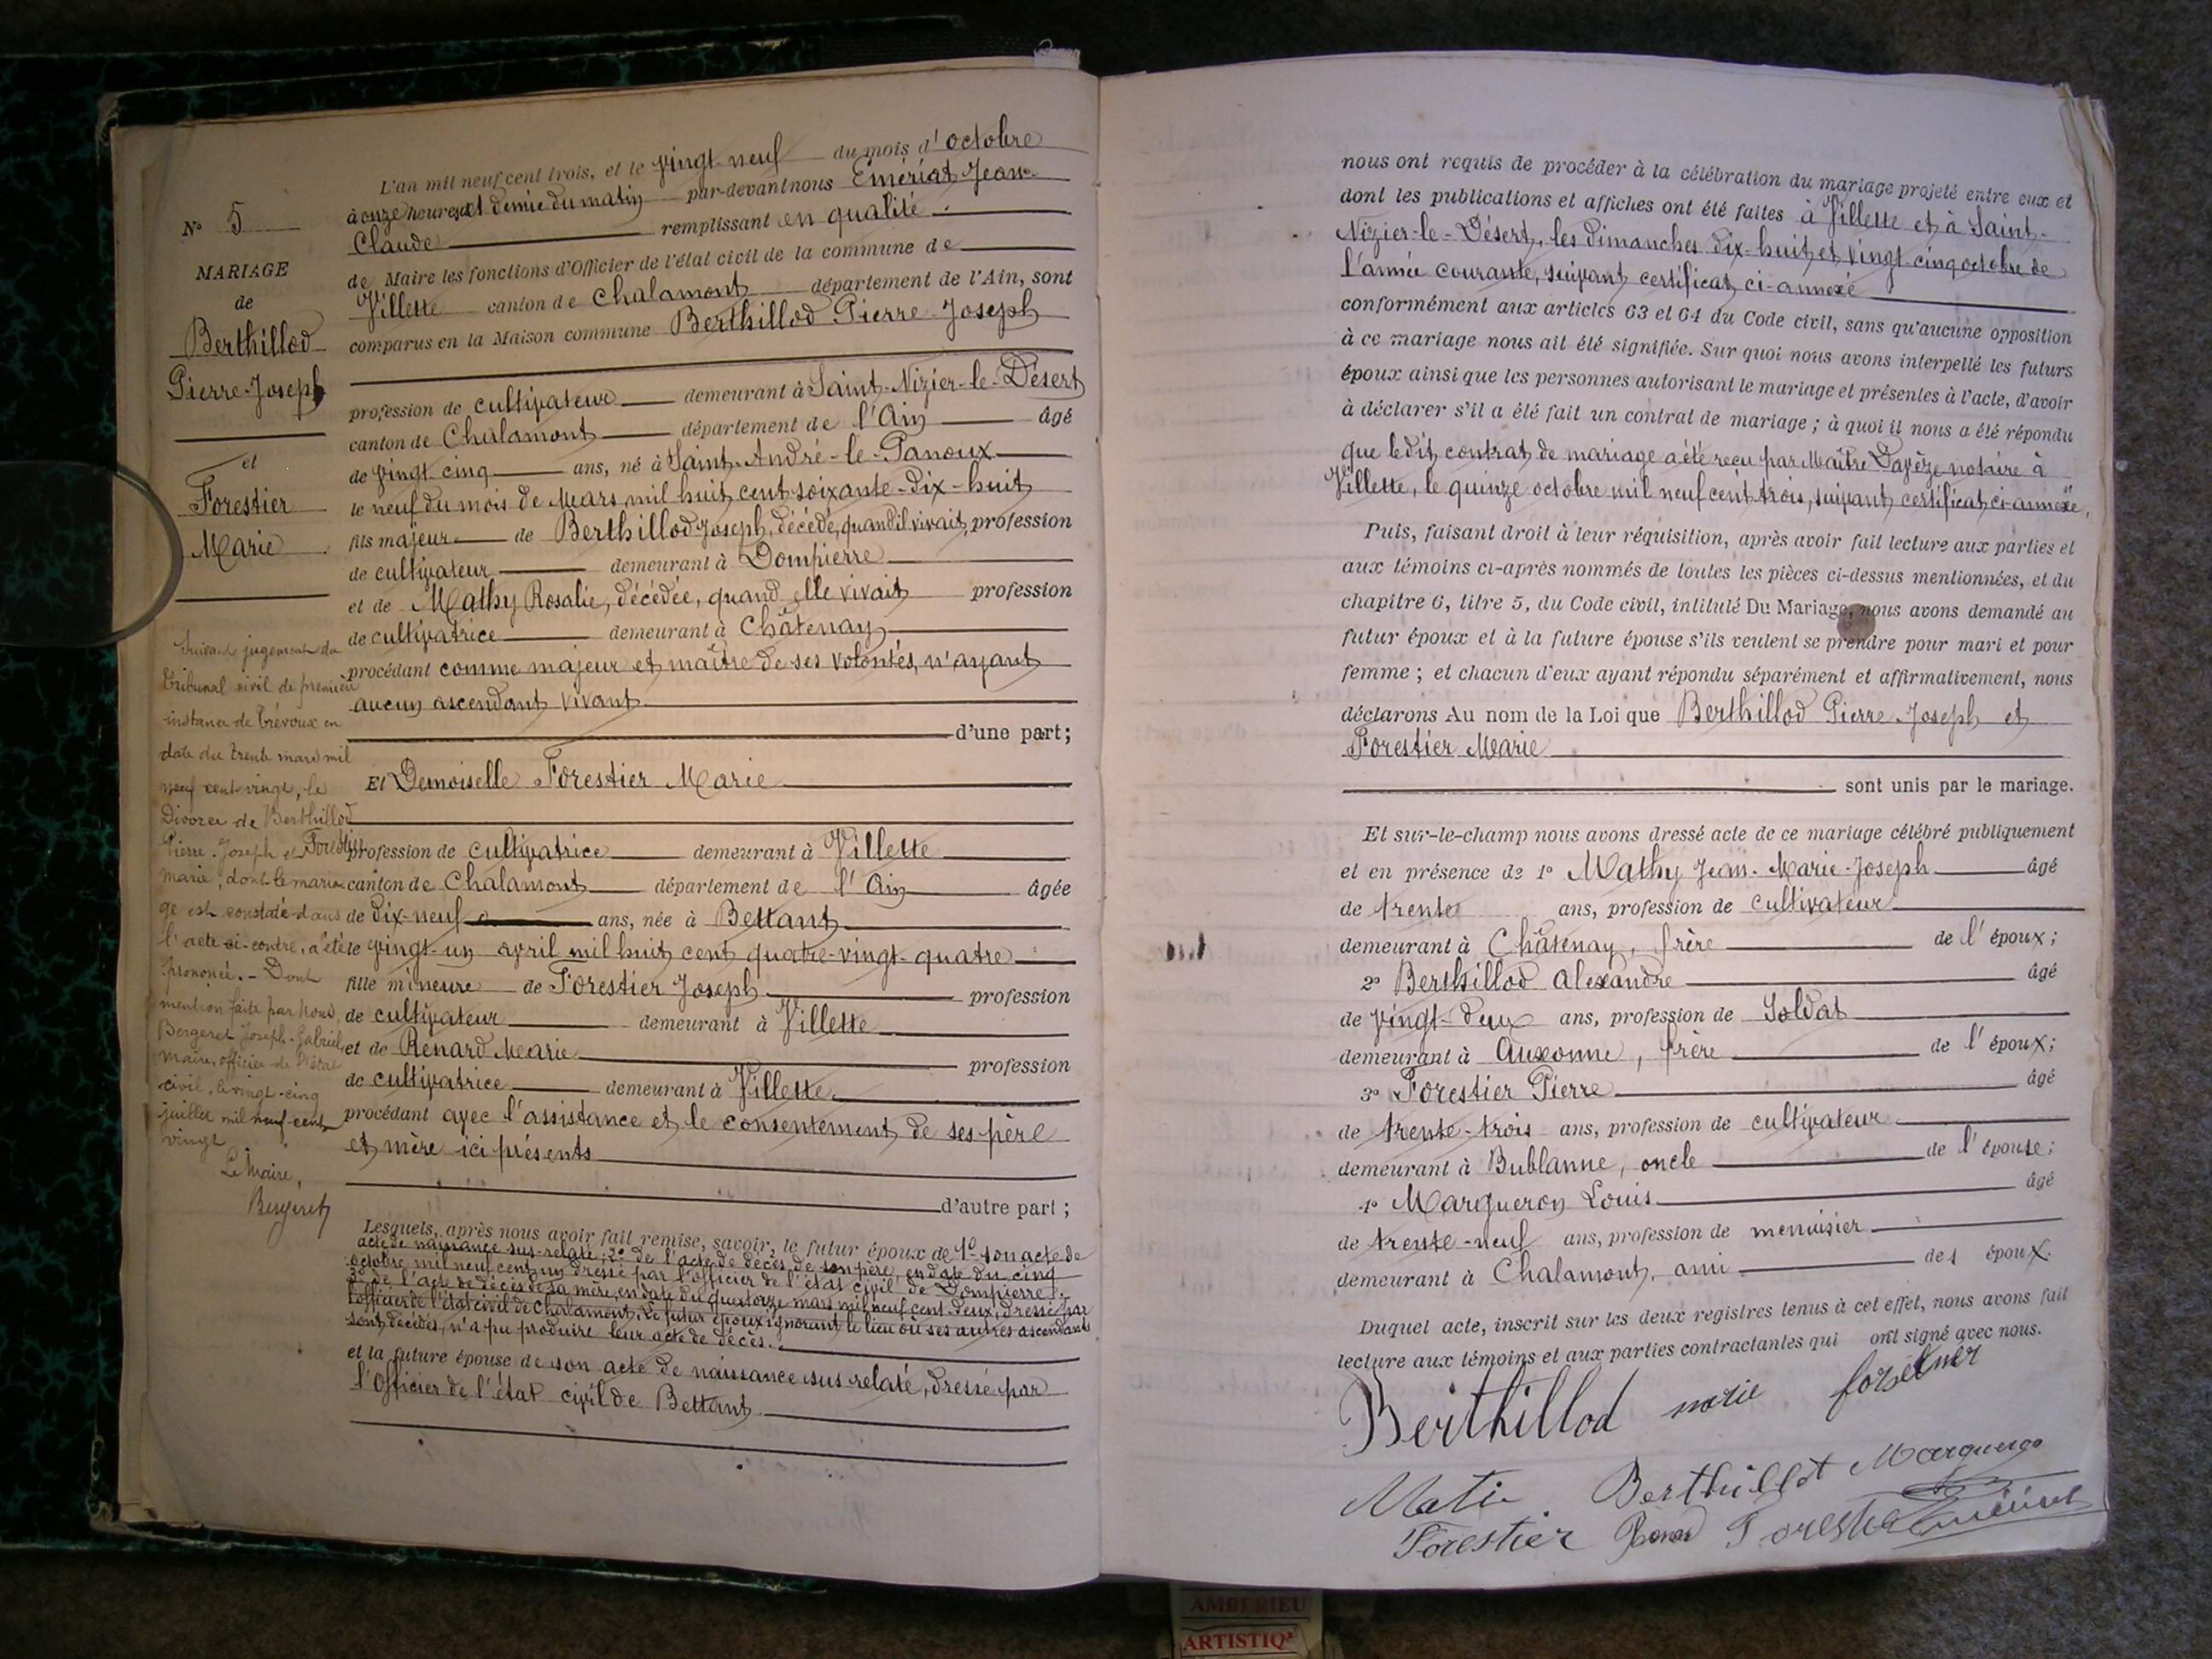 L'an mil neuf cent trois, et le vingt neuf du mois d'octobre
à onze heures et demie du matin par-devant nous Emériat Jean-
Claude remplissant en qualité
de Maire les fonctions d'Officier de l'état civil de la commune de
Villette canton de Chalamont département de l'Ain, sont
comparus en la Maison commune Berthillod Pierre-Joseph
profession de cultivateur demeurant à Saint-Nizier-le-Désert
canton de Chalamont département de l'Ain âgé
de vingt cinq ans, né à Saint-André-le-Panoux
le neuf du mois de Mars mil huit cent soixante-dix-huit
fils majeur de Berthillod Joseph, décédé, quand il vivait, profession
de cultivateur demeurant à Dompierre
et de Mathy Rosalie, décédée, quand elle vivait profession
de cultivatrice demeurant à Châtenay,
procédant comme majeur et maître de ses volontés, n'ayant
aucun ascendant vivant
d'une part;
Et Demoiselle Forestier Marie
profession de cultivatrice demeurant à Villette
canton de Chalamont département de l'Ain âgée
de dix-neuf ans, née à Bettant
le vingt-un avril mil huit cent quatre-vingt-quatre
fille mineure de Forestier Joseph profession
de cultivateur demeurant à Villette
et de Renard Marie profession
de cultivatrice demeurant à Villette
procédant avec l'assistance et le consentement de ses père
et mère ici présents
d'autre part;
Lesquels, après nous avoir fait remise, savoir, le futur époux de 1° son acte de
acte de naissance sus-relaté; 2° de l'acte de décès de son père, en date du cinq
octobre mil neuf cent un dressé par l'officier de l'état civil de Dompierre;
3° de l'acte de décès de sa mère, en date du quatorze mars mil neuf cent deux, dressé par
l'officier de l'état civil de Chalamont. Le futur époux ignorant le lieu où ses autres ascendants
sont décédés, n'a pu produire leur acte de décès.
et la future épouse de son acte de naissance sus-relaté, dressé par
l'Officier de l'état civil de Bettant
N° 5
MARIAGE
de
Berthillod
Pierre-Joseph
et
Forestier
Marie
Suivant jugement du
Tribunal civil de première
instance de Trévoux en
date du trente mars mil
neuf cent vingt, le
Divorce de Berthillod
Pierre-Joseph et Forestier
Marie, dont le maria
ge est constaté dans
l'acte ci-contre, a été
prononcé. - Dont
mention faite par Nous,
Bergeret Joseph-Gabriel,
Maire, officier de l'état
civil, le vingt-cinq
juillet mil neuf cent
vingt
Le Maire,
Bergeret
nous ont requis de procéder à la célébration du mariage projeté entre eux et
dont les publications et affiches ont été faites à Villette et à Saint-
Nizier-le-Désert, les dimanches dix-huit et vingt cinq octobre de
l'année courante, suivant certificat ci-annexé
conformément aux articles 63 et 64 du Code civil, sans qu'aucune opposition
à ce mariage nous ait été signifiée. Sur quoi nous avons interpellé les futurs
époux ainsi que les personnes autorisant le mariage et présentes à l'acte, d'avoir
à déclarer s'il a été fait un contrat de mariage; à quoi il nous a été répondu
que le dit contrat de mariage a été reçu par Maître notaire à
Villette, le quinze octobre mil neuf cent trois, suivant certificat ci-annexé,
Puis, faisant droit à leur réquisition, après avoir fait lecture aux parties et
aux témoins ci-après nommés de toutes les pièces ci-dessus mentionnées, et du
chapitre 6, titre 5, du Code civil, intitulé Du Mariage, nous avons demandé au
futur époux et à la future épouse s'ils veulent se prendre pour mari et pour
femme; et chacun d'eux ayant répondu séparément et affirmativement, nous
déclarons Au nom de la Loi que Berthillod Pierre-Joseph et
Forestier Marie
sont unis par le mariage.
Et sur-le-champ nous avons dressé acte de ce mariage célébré publiquement
et en présence de 1° Mathy Jean-Marie-Joseph âgé
de trente ans, profession de cultivateur
demeurant à Châtenay, frère de l'époux;
2° Berthillod Alexandre âgé
de vingt-deux ans, profession de Soldat
demeurant à Auxonne, frère de l'époux;
3° Forestier Pierre âgé
de trente-trois ans, profession de cultivateur
demeurant à Bublanne, oncle de l'épouse;
4° Margueron Louis âgé
de trente-neuf ans, profession de menuisier
demeurant à Chalamont, ami des époux.
Duquel acte, inscrit sur les deux registres tenus à cet effet, nous avons fait
lecture aux témoins et aux parties contractantes qui ont signé avec nous.
Berthillod marie
Berthillot
Forestier
AMBERIEU
ARTISTIQ